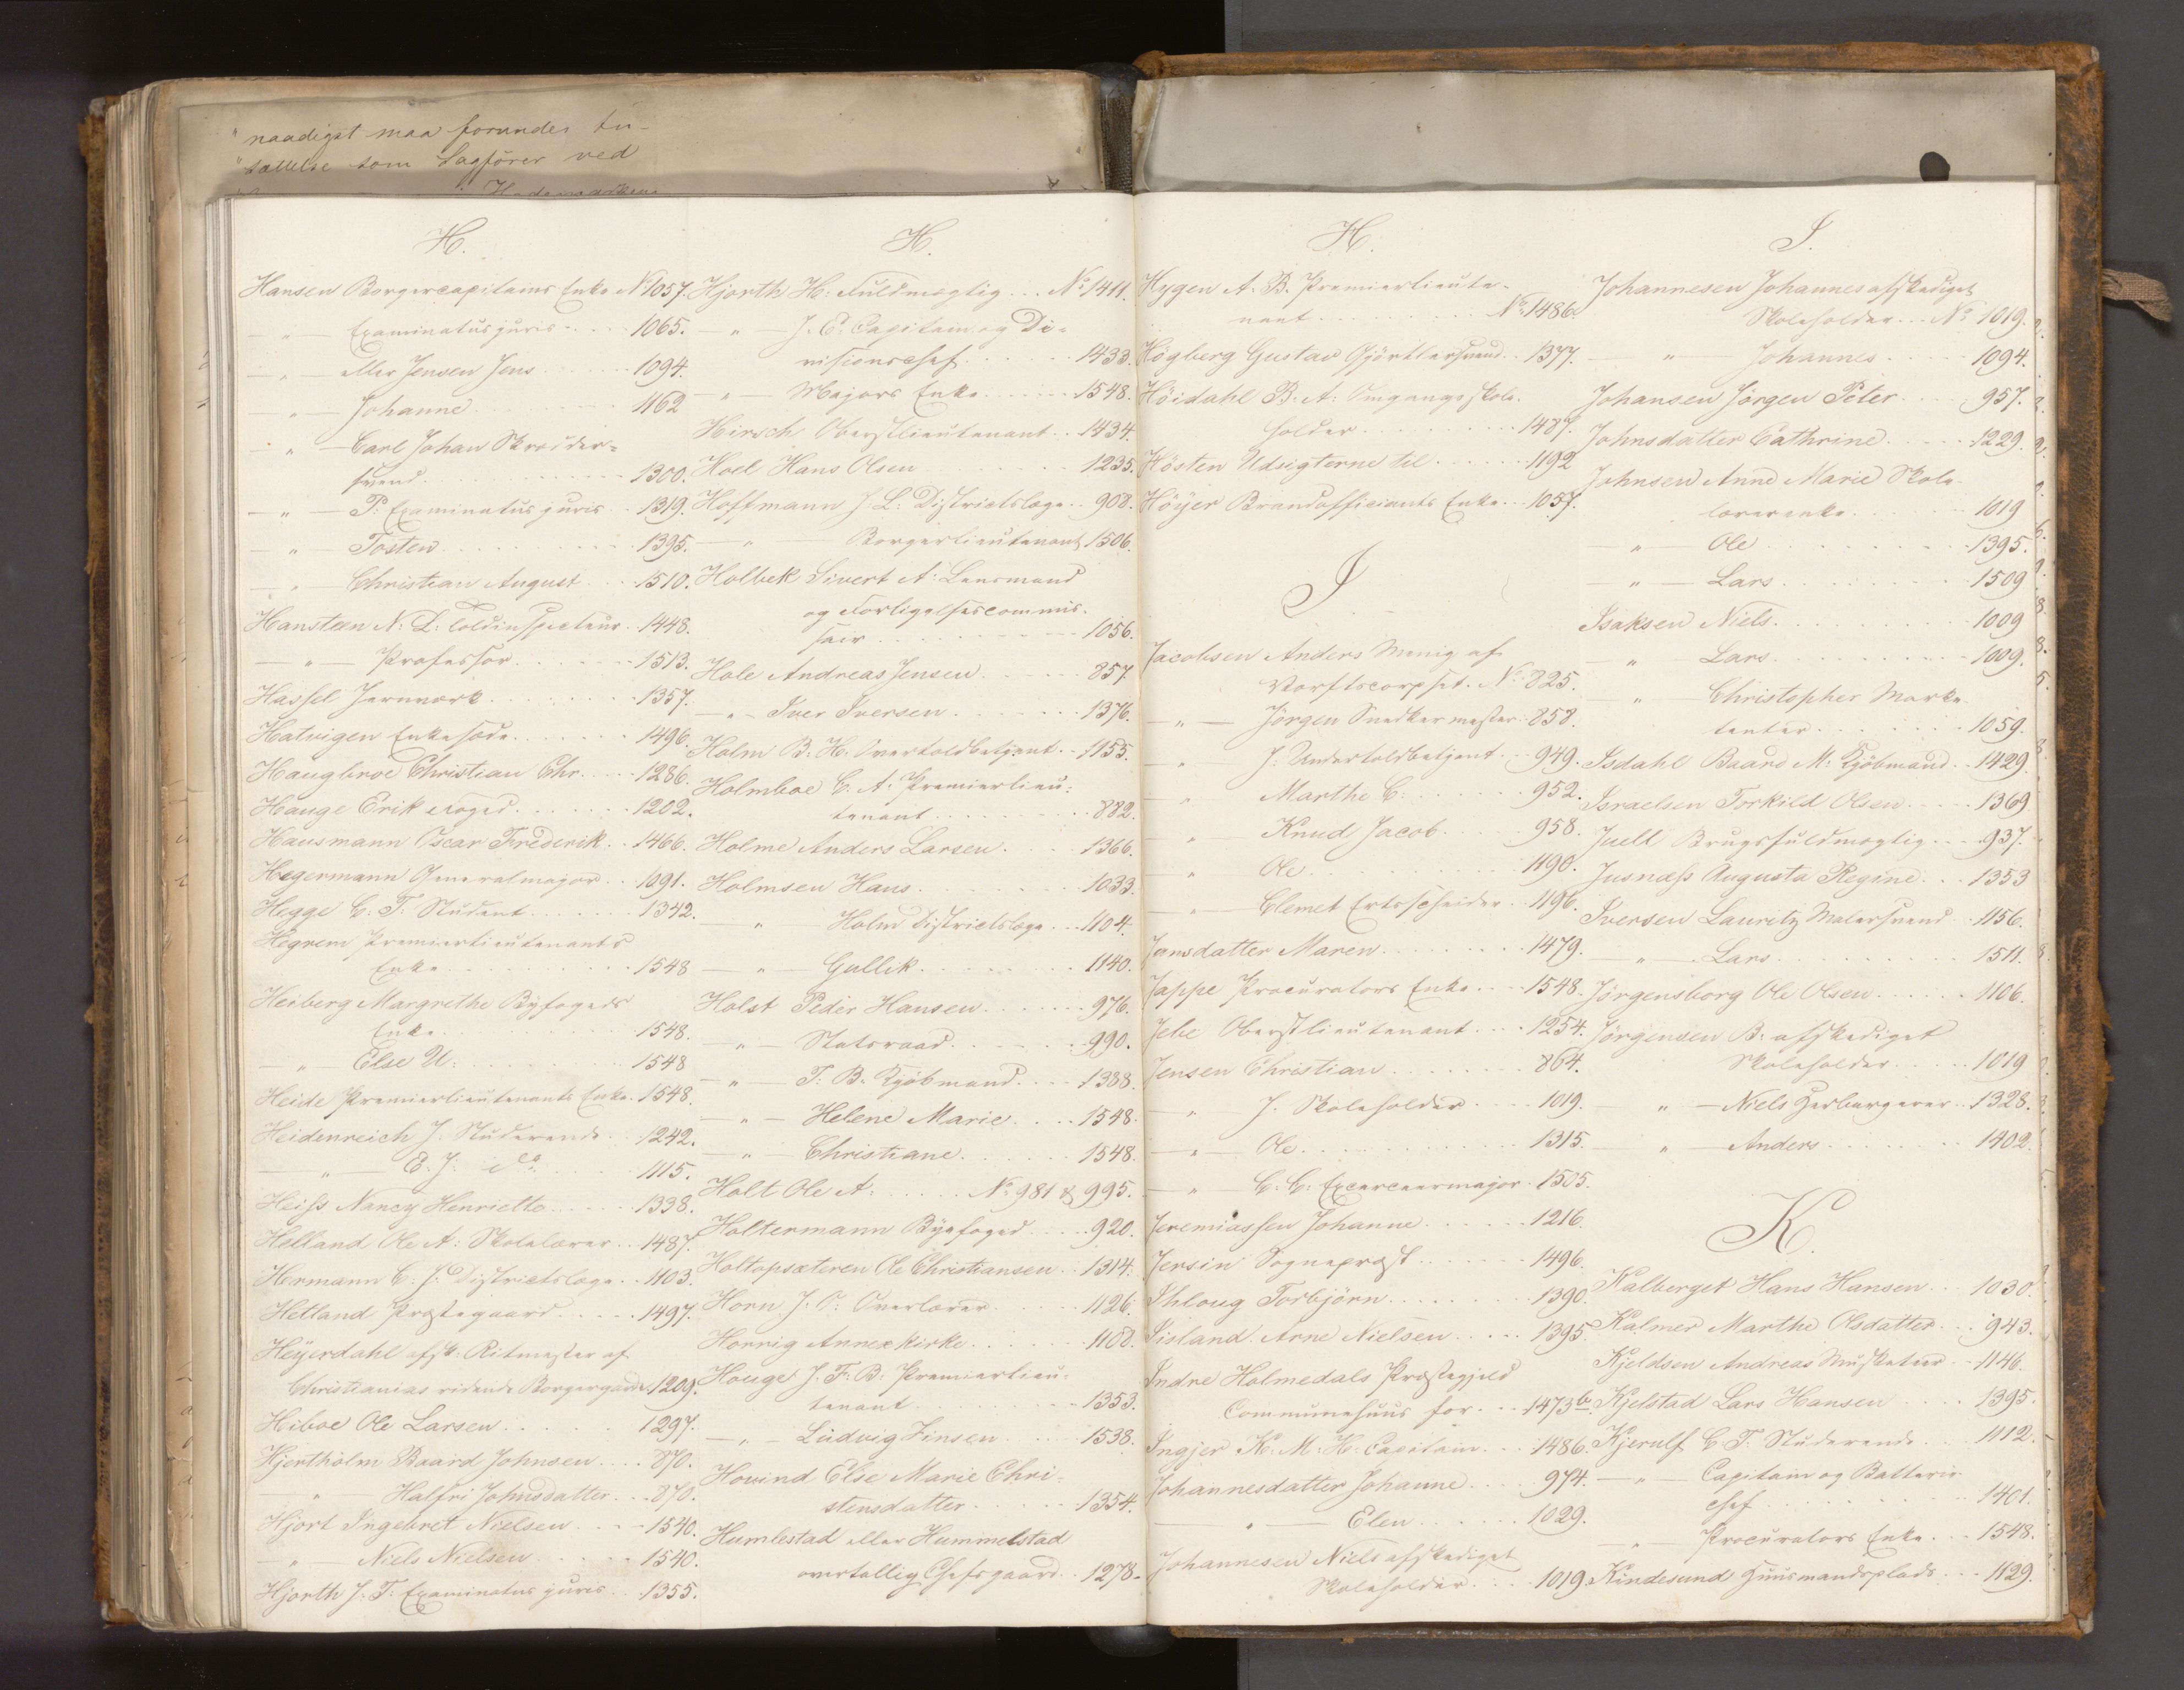 "naadigst maa forundes An-
"sættelse som Sagfører ved
Hedemarkens
H.
Hansen Borgercapitains Enke No 1057.
— " — Examinatus juris . . . . 1065.
— " — eller Jensen Jens . . . . . 1094.
— " — Johanne . . . . . . . 1162
— " — Carl Johan Skrædder=
svend . . . . . . . . . 1300.
— " — P: Examinatus juris . . 1319.
— " — Tosten . . . . . . . . . 1395.
— " — Christian August . . . 1510.
Hansteen N: L: Toldinspecteur . 1448.
— " — Professor . . . . . . 1513.
Hassel Jernværk . . . . . . . 1357.
Hatvigen Enkesæde . . . . . . 1496.
Haugbroe Christian Chr. . . . 1286.
Hauge Erik Foged . . . . . . 1202.
Hausmann Oscar Frederik . . 1466.
Hegermann Generalmajor . . 1091.
Hegge C. T. Student . . . . . . 1342.
Hegrem Premierlieutenants
Enke . . . . . . . . . . 1548
Heiberg Margrethe Byfogeds
Enke . . . . . . . . . . 1548.
— " — Else U: . . . . . . . . 1548
Heide Premierlieutenants Enke . 1548.
Heidenreich J. Studerende . . 1242.
— " — E. J. do . . . . . 1115.
Heiss Nancy Henriette . . . . . 1338.
Helland Ole A: Skolelærer . . 1487.
Hermann C. J. Districtslæge . . 1103.
Hetland Præstegaard . . . . . 1497.
Heyerdahl afsk: Ritmester af
Christianias ridende Borgergarde 1209.
Hiboe Ole Larsen . . . . . 1297.
Hjertholm Baard Johnsen . . . . 870.
— " — Halfri Johnsdatter . . . 870.
Hjort Ingebret Nielsen . . . . 1540.
— " — Niels Nielsen . . . . . 1540.
Hjorth J. T: Examinatus juris . . 1355.
H.
Hjorth H: Fuldmægtig . . . No 1411.
— " — J. E: Capitain og Di=
visionschef . . . . . . 1433.
— " — Majors Enke . . . . . 1548.
Hirsch Oberstlieutenant . . 1434.
Hoel Hans Olsen . . . . . . 1235.
Hoffmann J. L: Districtslæge . . 908.
— " — Borgerlieutenant 1506.
Holbek Sivert A: Lensmand
og Forligelsescommis-
sair . . . . . . . . . . 1056.
Hole Andreas Jensen . . . . . . 857.
— " — Iver Iversen . . . . . . . 1376.
Holm B. H: Overtoldbetjent . . 1155.
Holmboe C. A: Premierlieu=
tenant . . . . . . . . . 882.
Holme Anders Larsen . . . . 1366.
Holmsen Hans . . . . . . . . 1033.
— " — Holm Districtslæge . . . 1104.
— " — Gullik . . . . . . . . 1140.
Holst Peder Hansen . . . . . . 976.
— " — Statsraad . . . . . . . 990.
— " — T: B. Kjøbmand . . . . 1388.
— " — Helene Marie . . . . 1548.
— " — Christiane . . . . . . 1548.
Holt Ole A: . . . . . No 981 & 995.
Holtermann Byefoged . . . . 920.
Holtopsæteren Ole Christiansen . . 1314.
Horn J. O: Overlærer . . . . . 1126.
Hornig Annexkirke . . . . . 1108.
Houge J. F. B: Premierlieu=
tenant . . . . . . . . . 1353.
— " — Ludvig Zinsen . . . . 1538.
Hovind Else Marie Chri=
stensdatter . . . . . . 1354.
Humlestad eller Hummelstad
overtallig Chefsgaard . . 1278.
H.
Hygen A. B. Premierlieute-
nant . . . . . . . . . No 1486.
Högberg Gustav Gjörtlersvend . . 1377.
Höidahl B. A: Omgangsskole-
holder . . . . . . . . . 1487.
Hösten Udsigterne til . . . . . . 1192
Höyer Brandofficiants Enke . . . 1057.
I
Jacobsen Anders Menig af
Vorftscorpset . No 825.
— " — Jörgen Snedkermester . 858.
— " — J: Undertoldbetjent . . 949.
" Marthe C: . . . . . . . 952.
" Knud Jacob . . . . . 958.
" Ole . . . . . . . . . 1190.
— " — Clemet Ertsscheider . . 1196.
Jansdatter Maren . . . . . . . . 1479.
Jappe Procurators Enke . . . 1548.
Jebe Oberstlieutenant . . . . 1254.
Jensen Christian . . . . . . . . 864.
" J. Skoleholder . . . . 1019.
— " — Ole . . . . . . . . . . . 1315.
— " — C. C: Exerceermajor . 1505.
Jeremiassen Johanne . . . . . . 1216.
Jersin Sognepræst . . . . . . 1496.
Ihloug Torbjörn . . . . . . . 1390.
Iisland Arne Nielsen . . . . . 1395.
Indre Holmedals Præstegjeld
Communehuus for . . . 1473b.
Ingjer K. M. H: Capitain . . . 1486.
Johannesdatter Johanne . . . . 974.
— " — Elen . . . . . . 1029.
Johannesen Niels afskediget
Skoleholder . . . . 1019.
I.
Johannesen Johannes afskediget
Skoleholder . . . No 1019.
— " — Johannes . . . . . 1094.
Johansen Jörgen Peter . . . . 957.
Johnsdatter Cathrine . . . . . 1229.
Johnsen Anne Marie Skole-
lærerenke . . . . . . . 1019
— " — Ole . . . . . . . . . . 1395.
— " — Lars . . . . . . . . . 1509
Isaksen Niels . . . . . . . . . 1009
— " — Lars . . . . . . . . . 1009.
— " — Christopher Marke-
tenter . . . . . . . 1059.
Isdahl Baard M: Kjöbmand . . 1429.
Israelsen Torkild Olsen . . . . . 1369
Juell Brugsfuldmægtig . . . . 937.
Jusnæss Augusta Regine . . . 1353
Iversen Lauritz Malersvend . . 1156.
— " — Lars . . . . . . . . . . 1511.
Jörgensborg Ole Olsen . . . . . . 1106.
Jörgensen B: afskediget
Skoleholder . . . . . 1019
" — Niels Herbergerer . . 1328.
" — Anders . . . . . . . . 1402
K.
Kalberget Hans Hansen . . . 1030.
Kalmer Marthe Olsdatter . . . 943.
Kjeldsen Andreas Musketeer . . 1146.
Kjelstad Lars Hansen . . . . 1395.
Kjerulf C. T. Studerende . . . 1112.
— " — Capitain og Batterie-
chef . . . . . . . . . 1401.
— " — Procurators Enke . . . 1548.
Kindesund Huusmandsplads . . . 1129.